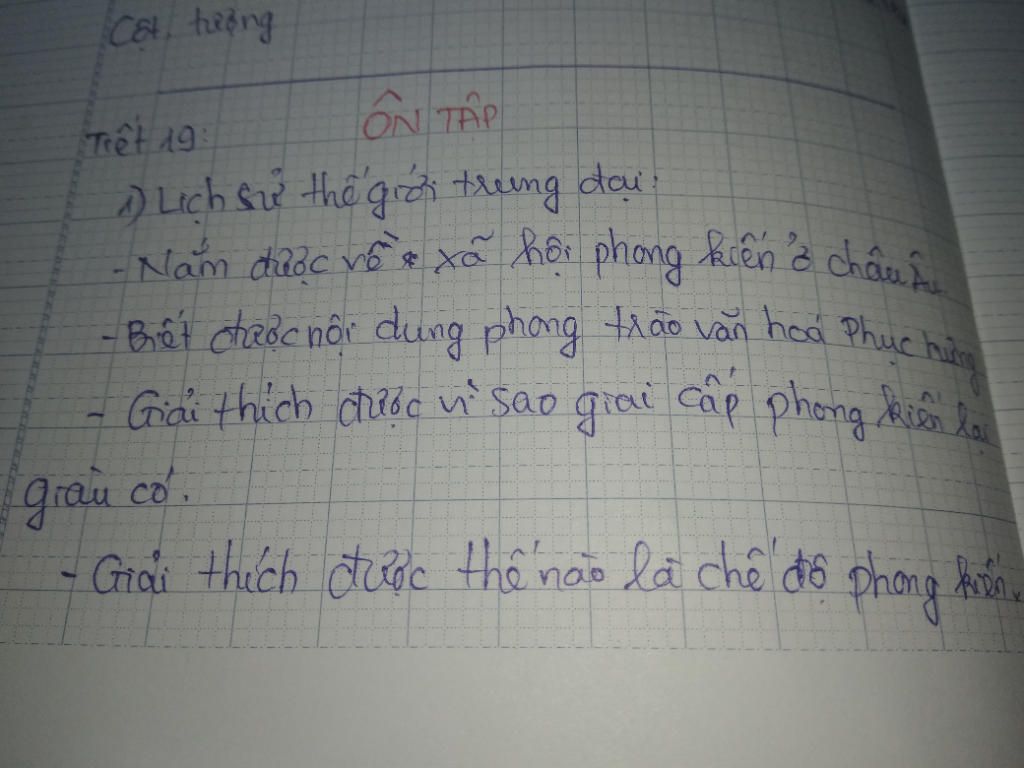 Cột, tượng
ÔN TẬP
Tiết 19:
1) Lịch sử thế giới trung đại:
- Nắm được về xã hội phong kiến ở châu Âu
- Biết được nội dung phong trào văn hoá Phục hưng
- Giải thích được vì sao giai cấp phong kiến lại
giàu có.
- Giải thích được thế nào là chế độ phong kiến.